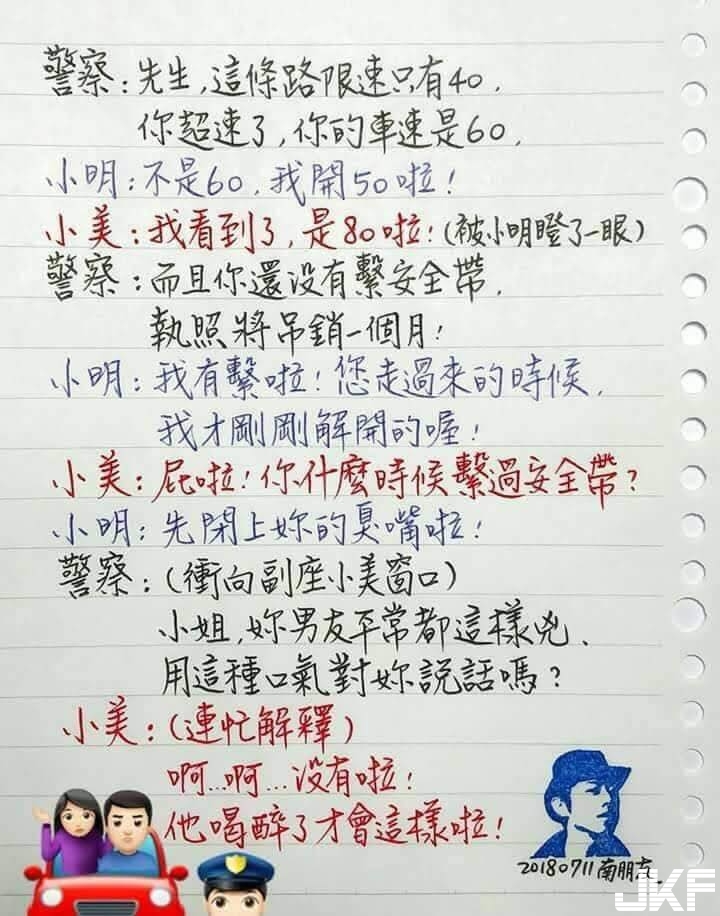 警察:先生,這條路限速只有40.
你超速了,你的車速是60.
小明:不是60,我開50啦!
小美:我看到了,是80啦!(被小明瞪了一眼)
警察:而且你還没有繫安全帶.
執照將吊銷一個月!
小明:我有繫啦!您走過來的時候.
我才剛剛解開的喔!
小美:屁啦!你什麼時候繫過安全帶?
小明:先閉上妳的臭嘴啦!
警察:(衝向副座小美窗口)
小姐,妳男友平常都這樣兇.
用這種口氣對妳說話嗎?
小美:(連忙解釋)
啊...啊...没有啦!
他喝醉了才會這樣啦!
20180711南朋友
JKF